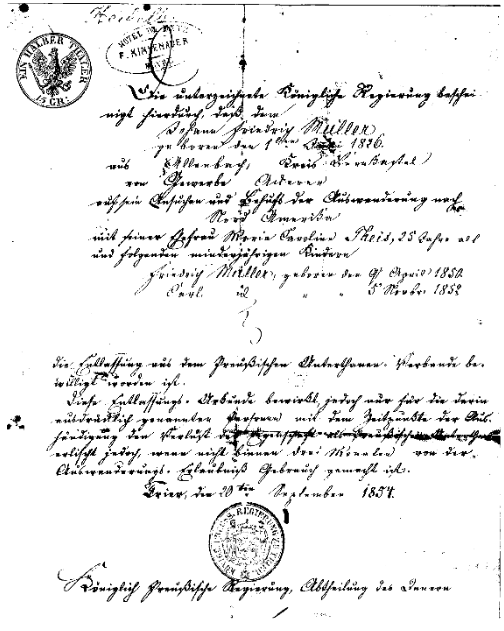 EIN HALBER THALER
15 GR.
HOTEL
F. KINZENAUER
Die unterzeichnete Königliche Regierung beschei-
nigt hierdurch, daß dem
Johann Friedrich Müller
geboren den 1ten 1826.
aus Allenbach, Kreis Bernkastel
von Gewerbe Ackerer
auf sein Ansuchen und Behufs der Auswanderung nach
Nord Amerika
mit seiner Ehefrau Marie Caroline Theis, 25 Jahre alt
und folgenden minderjährigen Kindern
Friedrich Müller, geboren den 9 April 1850
Carl id " " 5 Novbr. 1852
die Entlassung aus dem Preußischen Unterthanen-Verbande be-
willigt worden ist.
Diese Entlassungs-Urkunde bewirkt jedoch nur für die darin
ausdrücklich genannten Personen mit dem Zeitpunkte der Aus-
händigung den Verlust der Eigenschaft als Preußischer
erlischt jedoch, wenn nicht binnen drei Monaten von der
Auswanderungs-Erlaubniß Gebrauch gemacht ist.
Trier, den 20ten September 1854.
REGIERUNG
Königlich Preußische Regierung, Abtheilung des Innern